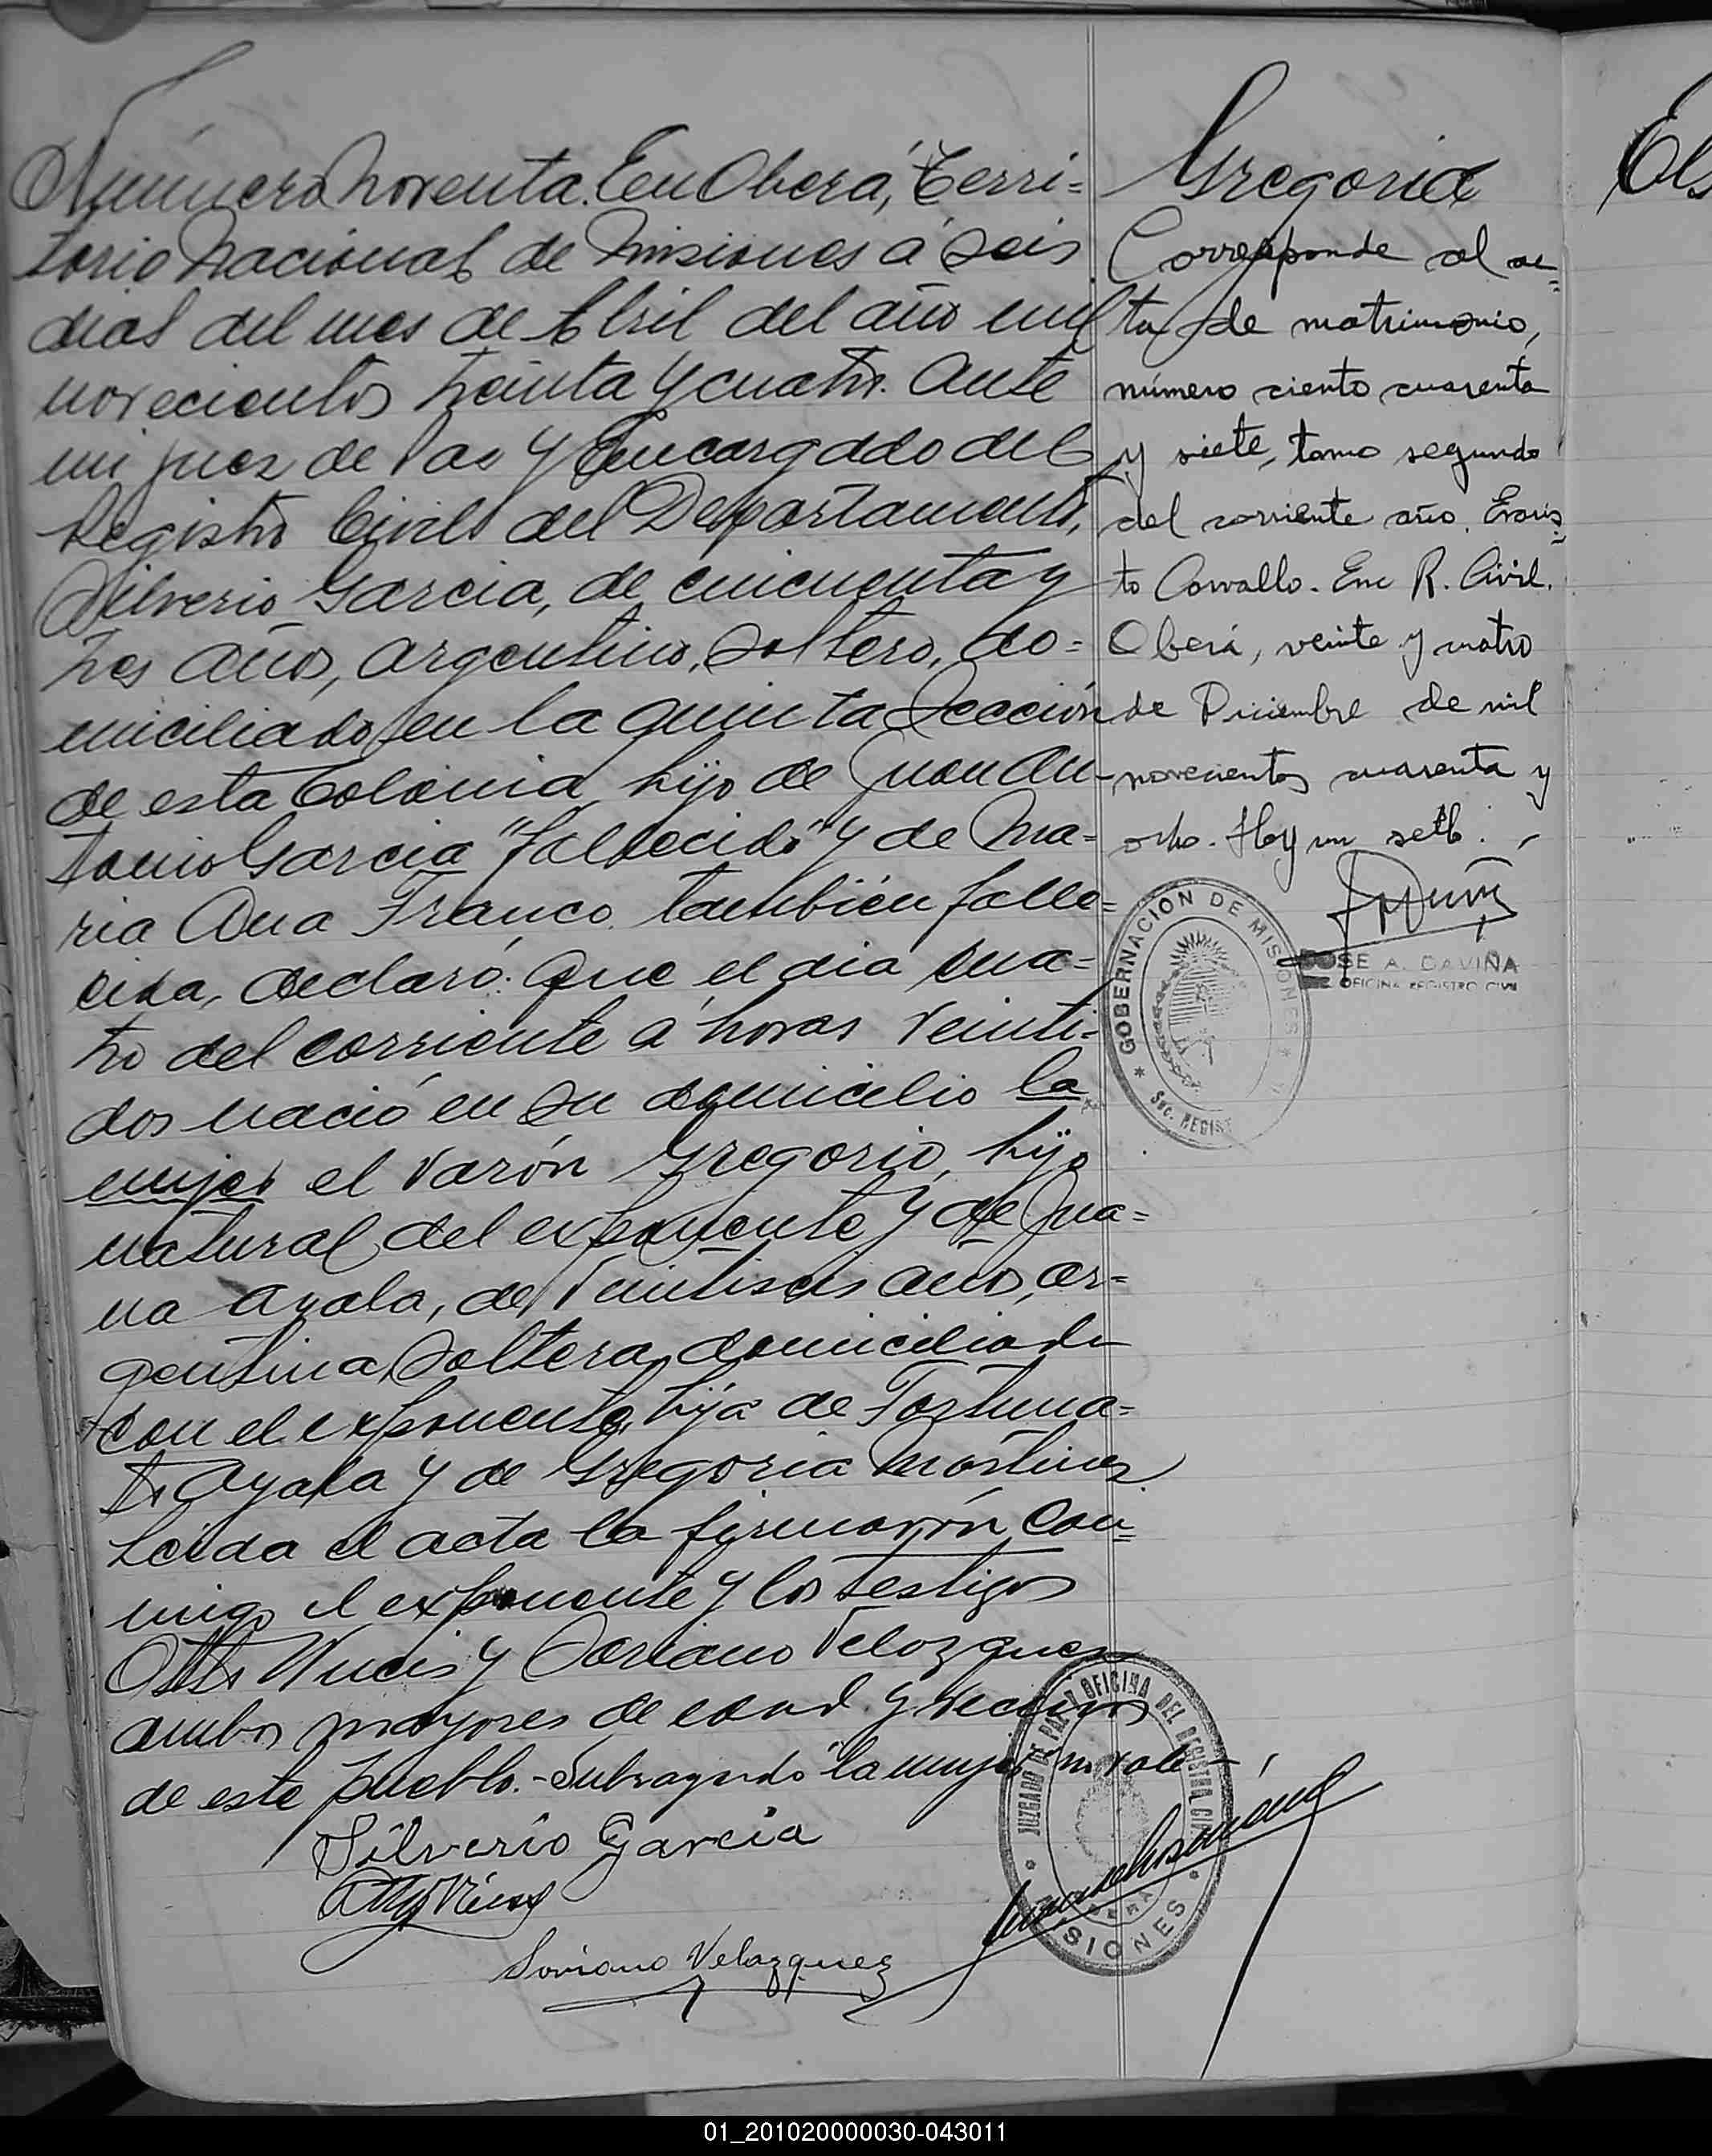 Número Noventa. En Oberá, Terri=
torio Nacional de Misiones á seis
dias del mes de Abril del año mil
novecientos treinta y cuatro. Ante
mi juez de Pas y Encargado del
Registro Civil del Departamento,
Silverio Garcia, de cincuenta y
tres años, argentino, soltero, do=
miciliado en la quinta Sección
de esta Colonia, hijo de Juan An-
tonio Garcia "fallecido" y de Ma=
ria Ana Franco, también falle=
cida, declaró: Que el dia cua=
tro del corriente á horas veinti=
dos nació en su domicilio la
mujer el varón Gregorio, hijo
natural del exponente y de Jua=
na Ayala, de veintiseis años, ar=
gentina, soltera, domiciliada
con el exponente, hija de Fortuna=
to Ayala y de Gregoria Martinez
Leida el acta la firmarón con=
migo el exponente y los testigos
Otto y Soriano Velozquez
ambos mayores de edad y vecinos
de este pueblo.- Subrayado "la mujer" no vale-
Silverio Garcia
Soriano Velazquez
Gregoria
Corresponde al ac=
ta de matrimonio,
número ciento cuarenta
y siete, tomo segundo
del corriente año, Evaris=
to Carvallo. Enc R. Civil.
Oberá, veinte y cuatro
de Diciembre de mil
novecientos cuarenta y
ocho. Hay un sello.
GOBERNACIÓN DE MISIONES
Suc. REGIS
JOSE A. DAVIÑA
OFICINA REGISTRO CIVIL
JUZGADO DE PAZ OFICINA DEL REGISTRO CIVIL
OBERA
MISIONES
01_201020000030-043011